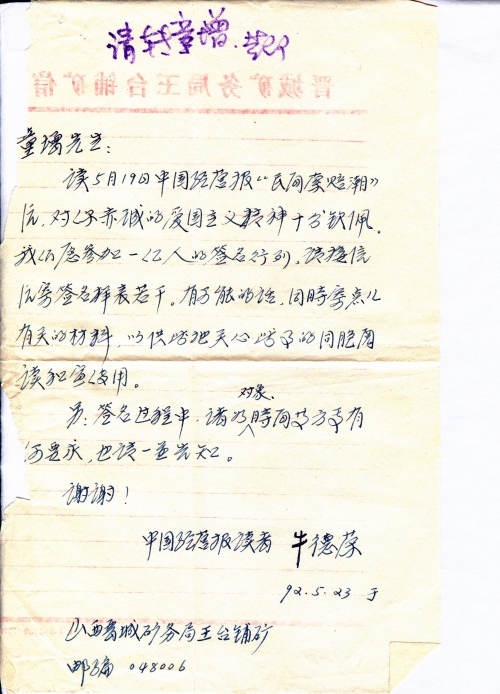 请转童增.
晋城矿务局王台铺矿信
童增先生:
读5月19日中国经营报“民间索赔潮”
后,对您赤诚的爱国主义精神十分钦佩。
我们愿参加一亿人的签名行列,请接信
后寄签名样表若干。有可能的话,同时寄点儿
有关的材料,以供诸
读和宣传用。
另:签名过程中,诸如对象、时间及方式有
何要求,也请一并告知。
谢谢!
中国经营报读者 牛德荣
92.5.23 于
山西晋城矿务局王台铺矿
邮编 048006